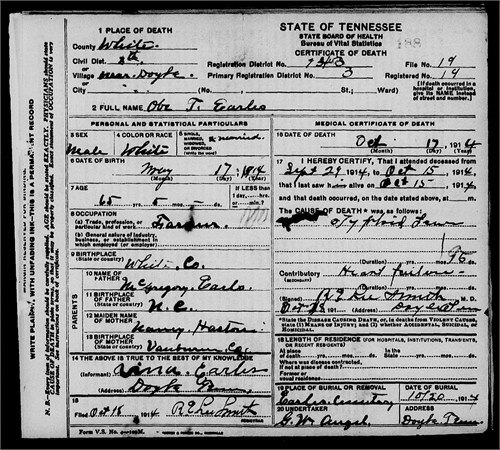 1 PLACE OF DEATH
STATE OF TENNESSEE
STATE BOARD OF HEALTH
Bureau of Vital Statistics
CERTIFICATE OF DEATH
County White
Civil Dist. 8th
Village near Doyle
City
Registration District No.
File No. 19
Primary Registration District No. 3
Registered No. 19
(No. St.; Ward)
(If death occurred in a hospital or institution, give its NAME instead of street and number.)
2 FULL NAME Obe T. Earles
PERSONAL AND STATISTICAL PARTICULARS
3 SEX
Male
4 COLOR OR RACE
White
5 SINGLE, MARRIED, WIDOWED, OR DIVORCED
(Write the word)
married
6 DATE OF BIRTH
May 17
(Month) (Day) (Year)
7 AGE
65 yrs. 5 mos. ds.
If LESS than 1 day, hrs. or min.?
8 OCCUPATION
(a) Trade, profession, or particular kind of work Farmer
(b) General nature of industry, business, or establishment in which employed (or employer)
9 BIRTHPLACE
White Co.
PARENTS
10 NAME OF FATHER
McGregory Earls
11 BIRTHPLACE OF FATHER
N. C.
12 MAIDEN NAME OF MOTHER
13 BIRTHPLACE OF MOTHER
Vanburen Co.
14 THE ABOVE IS TRUE TO THE BEST OF MY KNOWLEDGE
(Informant) Earles
(Address) Doyle Tenn
15
Filed Oct 18 1914 R E Lee Smith
REGISTRAR
Form V.S. No.
MEDICAL CERTIFICATE OF DEATH
16 DATE OF DEATH
Oct 17, 1914
(Month) (Day) (Year)
17 I HEREBY CERTIFY, That I attended deceased from
Sept 29 1914, to Oct 15 1914
that I last saw h alive on Oct 15 1914
and that death occurred, on the date stated above, at m.
The CAUSE OF DEATH* was as follows:
Typhoid Fever
(Duration) yrs. mos. ds.
Contributory Heart failure
(Duration) yrs. mos. ds.
(Signed) R E Lee Smith M. D.
(Address) Doyle Tenn
*State the Disease Causing Death, or, in deaths from Violent Causes, state (1) Means of Injury; and (2) whether Accidental, Suicidal, or Homicidal.
18 LENGTH OF RESIDENCE (FOR HOSPITALS, INSTITUTIONS, TRANSIENTS, OR RECENT RESIDENTS)
At place of death yrs. mos. ds.
In the State yrs. mos. ds.
Where was disease contracted, if not at place of death?
Former or usual residence
19 PLACE OF BURIAL OR REMOVAL
Earles cemetery
DATE OF BURIAL
10/20 1914
20 UNDERTAKER
G. W. Angel
ADDRESS
Doyle Tenn
WRITE PLAINLY, WITH UNFADING INK—THIS IS A PERMANENT RECORD